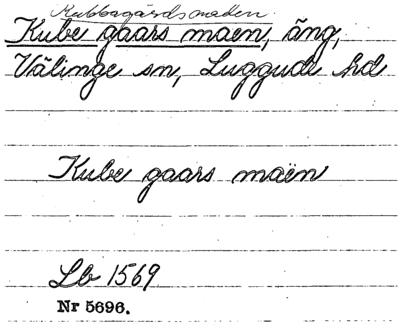 Kubbagårdsmaden.
Kube gaars maen, äng,
Välinge sn, Luggude hd
Kube gaars maen
Lb 1569
Nr 5696.